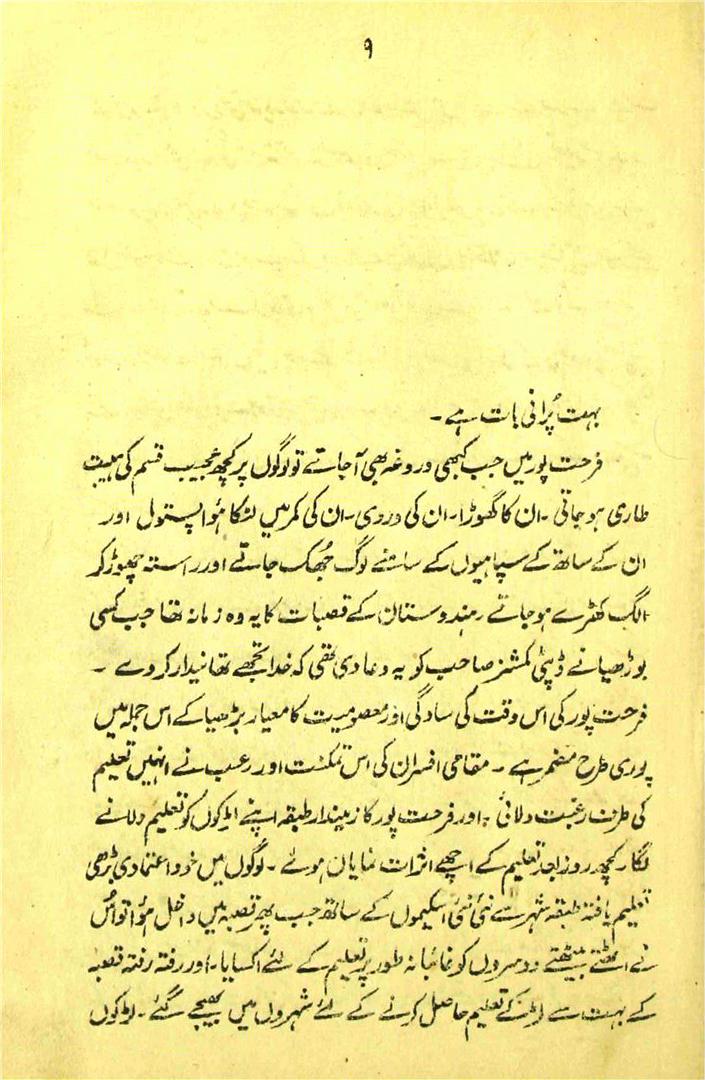 ۹
بہت پُرانی بات ہے ۔
فرحت پور میں جب کبھی دروغہ بھی آ جاتے تو لوگوں پر کچھ عجیب قسم کی ہیبت
طاری ہو جاتی ۔ ان کا گھوڑا ۔ ان کی وردی ۔ ان کی کمر میں لٹکا ہؤا پستول اور
ان کے ساتھ کے سپاہیوں کے سامنے لوگ جُھک جاتے اور راستہ چھوڑ کر
الگ کھڑے ہو جاتے ۔ ہندوستان کے قصبات کا یہ وہ زمانہ تھا جب کسی
بوڑھیا نے ڈپٹی کمشنر صاحب کو یہ دعا دی تھی کہ خدا تجھے تھانیدار کر دے ۔
فرحت پور کی اس وقت کی سادگی اور معصومیت کا معیار بڑھیا کے اس جملہ میں
پوری طرح مضمر ہے ۔ مقامی افسران کی اس تمکنت اور رعب نے انہیں تعلیم
کی طرف رغبت دلائی ۔ اور فرحت پور کا زمیندار طبقہ اپنے لڑکوں کو تعلیم دلانے
لگا ۔ کچھ روز بعد تعلیم کے اچھے اثرات نمایاں ہوئے ۔ لوگوں میں خود اعتمادی بڑھی
تعلیم یافتہ طبقہ شہر سے نئی نئی اسکیموں کے ساتھ جب پھر قصبہ میں داخل ہؤا تو اُس
نے اٹھتے بیٹھتے دوسروں کو غائبانہ طور پر تعلیم کے لئے اکسایا ۔ اور رفتہ رفتہ قصبہ
کے بہت سے لڑکے تعلیم حاصل کرنے کے لئے شہروں میں بھیجے گئے ۔ لڑکوں